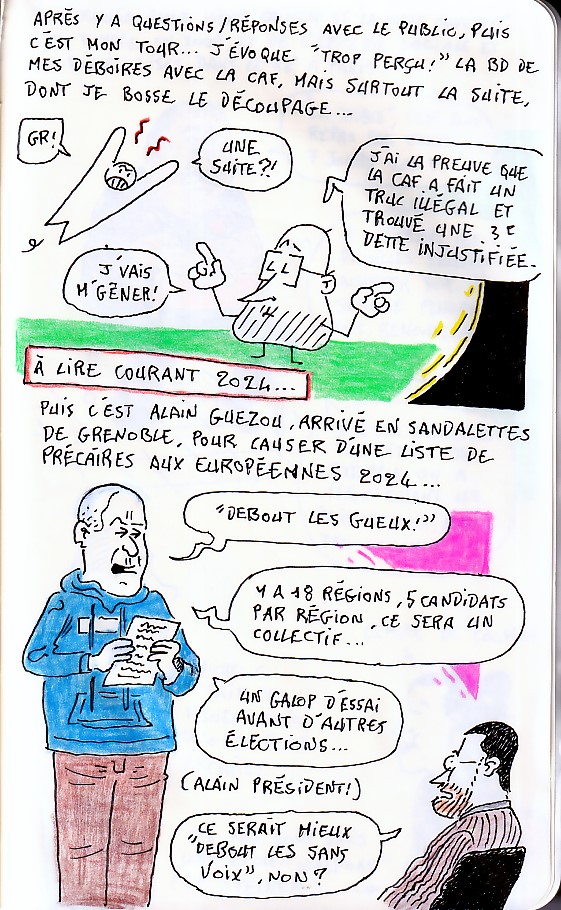 APRÈS Y A QUESTIONS/RÉPONSES AVEC LE PUBLIC, PUIS
C'EST MON TOUR... J'ÉVOQUE "TROP PERÇU!" LA BD DE
MES DÉBOIRES AVEC LA CAF, MAIS SURTOUT LA SUITE,
DONT JE BOSSE LE DÉCOUPAGE...
GR!
UNE
SUITE?!
J'AI LA PREUVE QUE
LA CAF A FAIT UN
TRUC ILLÉGAL ET
TROUVÉ UNE 3E
DETTE INJUSTIFIÉE.
J'VAIS
M'GÊNER!
À LIRE COURANT 2024...
PUIS C'EST ALAIN GUEZOU, ARRIVÉ EN SANDALETTES
DE GRENOBLE, POUR CAUSER D'UNE LISTE DE
PRÉCAIRES AUX EUROPÉENNES 2024...
"DEBOUT LES GUEUX!"
Y A 18 RÉGIONS, 5 CANDIDATS
PAR RÉGION, CE SERA UN
COLLECTIF...
UN GALOP D'ESSAI
AVANT D'AUTRES
ÉLECTIONS...
(ALAIN PRÉSIDENT!)
CE SERAIT MIEUX
"DEBOUT LES SANS
VOIX", NON?